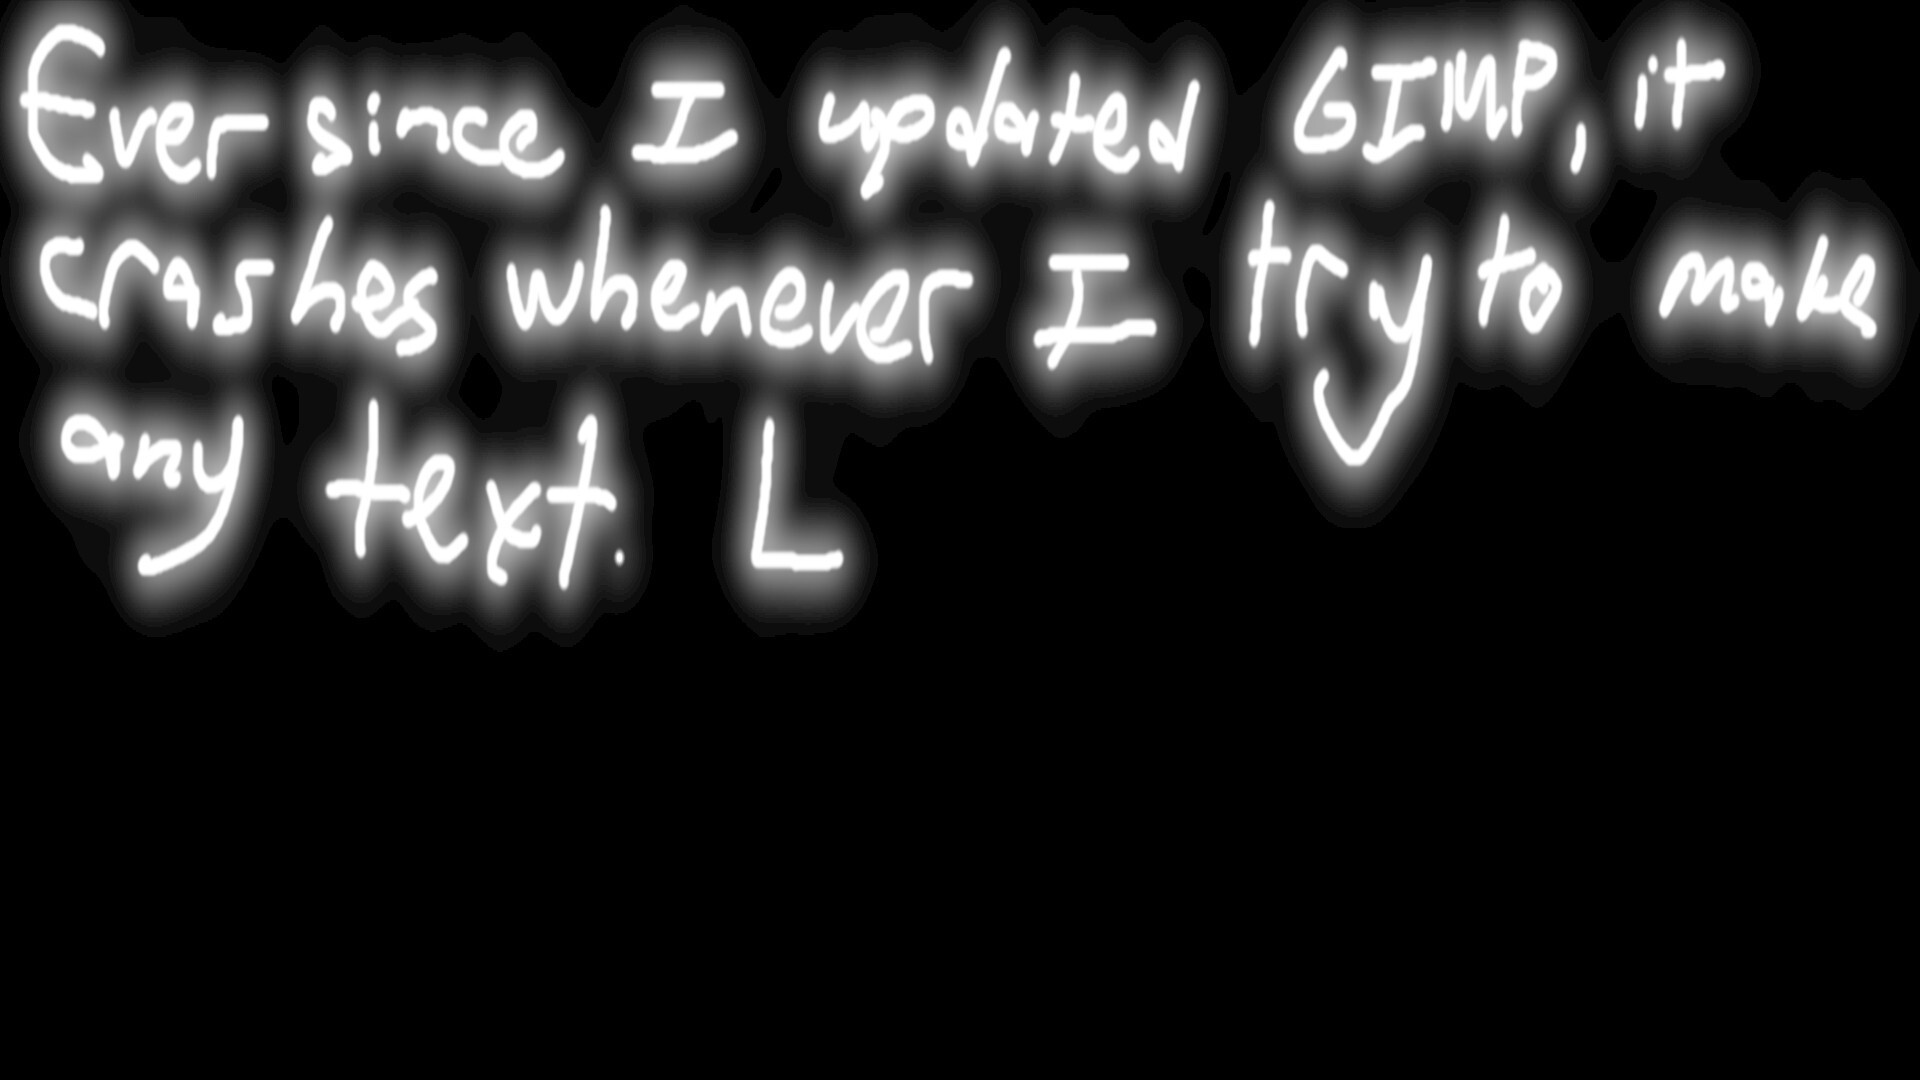 Ever since I updated GIMP, it
crashes whenever I try to make
any text. L